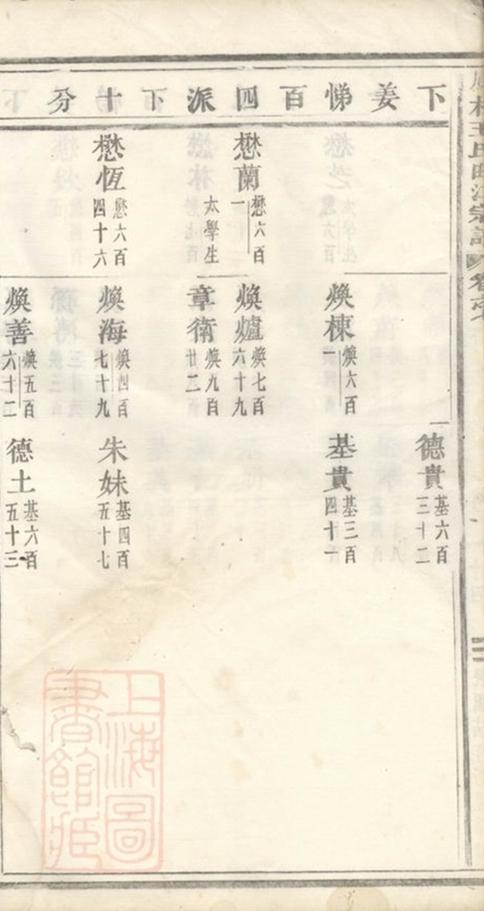 下姜悌百四派下十分
德貴 基六百三十二
煥棟 煥六百一
基貴 基三百四十一
懋蘭 懋六百一
太學生
煥爐 煥七百六十九
章衛 煥九百廿二
懋恆 懋六百四十六
煥海 煥四百七十九
朱妹 基四百五十七
煥善 煥五百六十二
德土 基六百五十三
上海圖書館藏